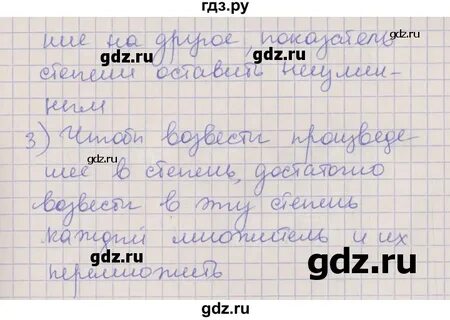 гдз.ру
ние на другое, показатель
степени оставить неизмен-
ним
3) Чтоби возвести произведе-
ние в степень, достаточно
возвести в эту степень
каждий множитель и их
перемножить
gdz.ru
gdz.ru
gdz.ru
gdz.ru
gdz.ru
gdz.ru
gdz.ru
gdz.ru
gdz.ru
гдз.ру